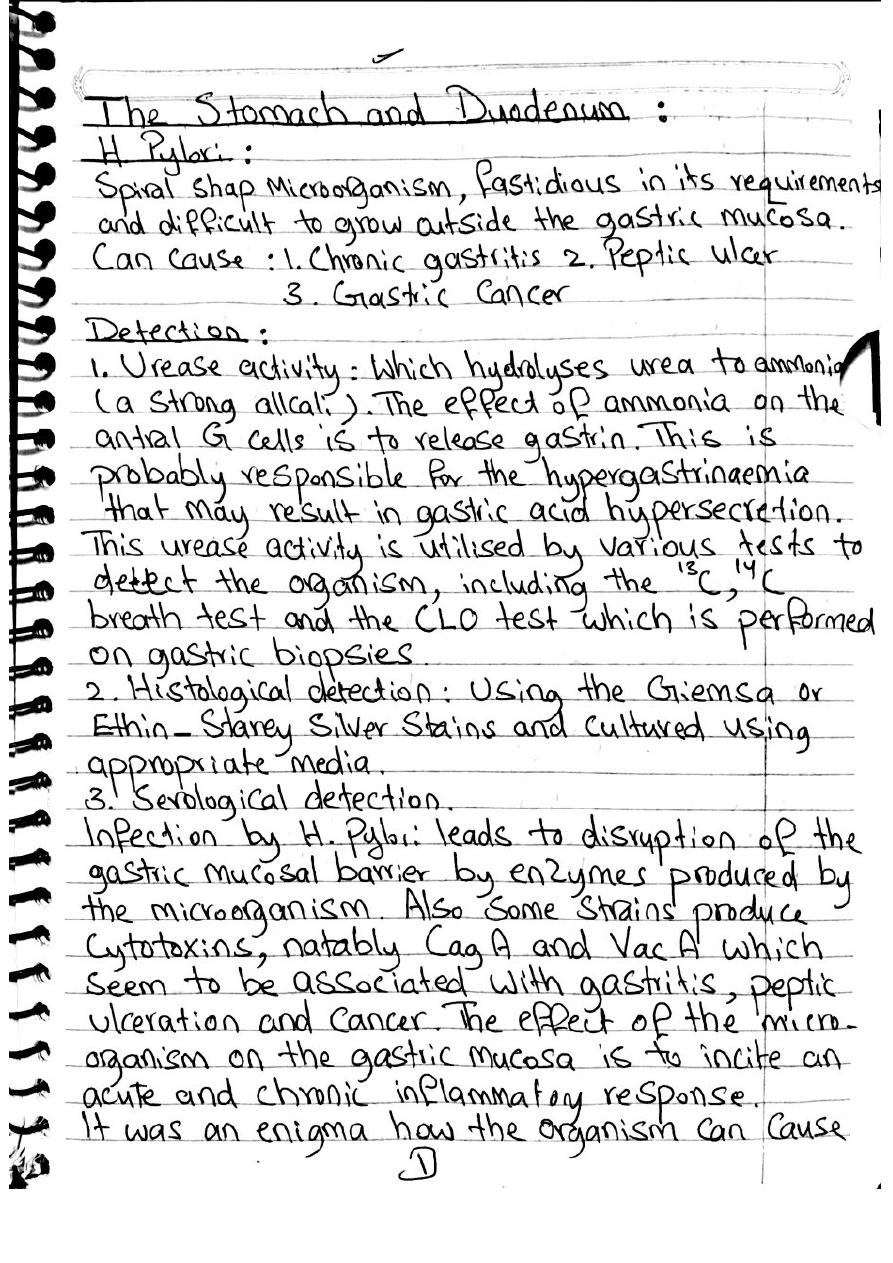 The Stomach and Duodenum :
H Pylori :
Spiral Shap Microorganism, fastidious in its requirements
and difficult to grow outside the gastric mucosa.
Can cause : 1. Chronic gastritis 2. Peptic ulcer
3. Gastric Cancer
Detection :
1. Urease activity : Which hydrolyses urea to ammonia
(a strong allcali). The effect of ammonia on the
antral G cells is to release gastrin. This is
probably responsible for the hypergastrinaemia
that may result in gastric acid hypersecretion.
This urease activity is utilised by various tests to
detect the organism, including the ¹³C, ¹⁴C
breath test and the CLO test which is performed
on gastric biopsies.
2. Histological detection : Using the Giemsa or
Ethin-Starey Silver Stains and Cultured using
appropriate media.
3. Serological detection.
Infection by H. Pylori leads to disruption of the
gastric mucosal barrier by enzymes produced by
the microorganism. Also Some Strains produce
Cytotoxins, natably Cag A and Vac A which
seem to be associated with gastritis, peptic
ulceration and cancer. The effect of the micro-
organism on the gastric mucosa is to incite an
acute and chronic inflammatory response.
It was an enigma how the organism can Cause
1